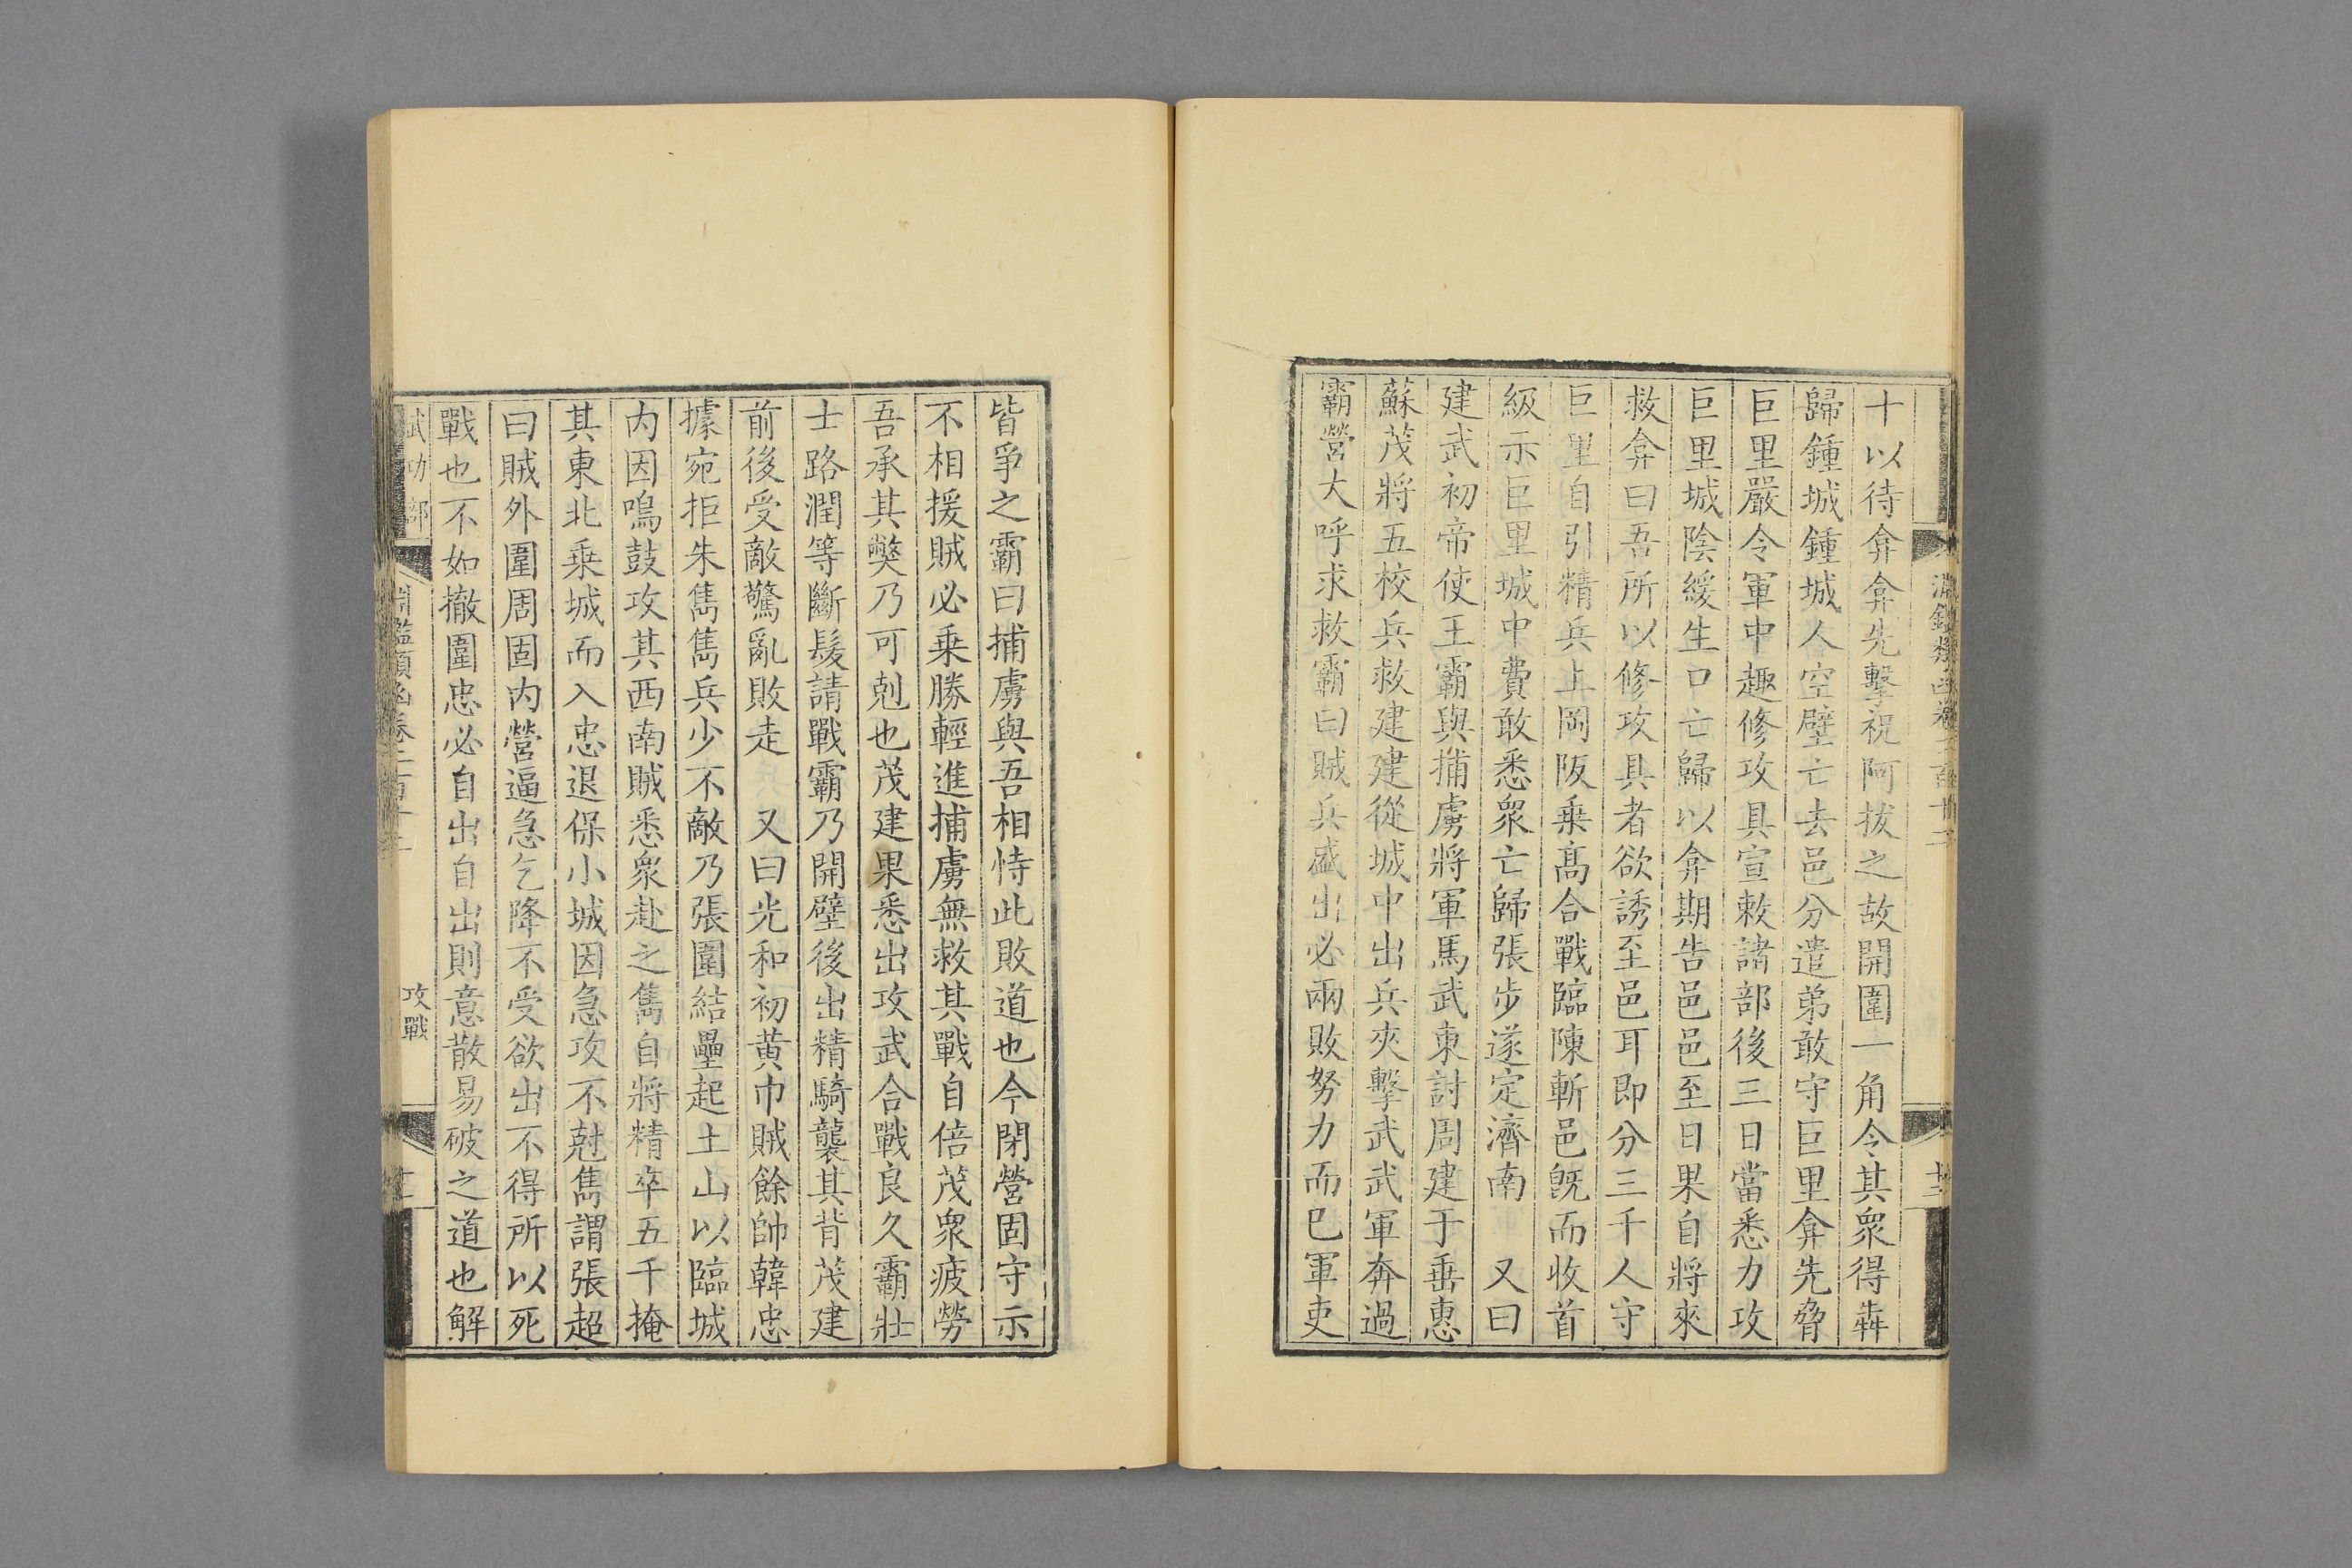 淵鑑類函卷二百十二
十以待弇弇先擊祝阿拔之故開圍一角令其衆得犇
歸鍾城鍾城人空壁亡去邑分遣弟敢守巨里弇先脅
巨里嚴令軍中趣修攻具宣敕諸部後三日當悉力攻
巨里城陰緩生口亡歸以弇期告邑邑至日果自將來
救弇曰吾所以修攻具者欲誘至邑耳即分三千人守
巨里自引精兵上岡阪乗髙合戰臨陳斬邑旣而收首
級示巨里城中費敢悉衆亡歸張步遂定濟南　又曰
建武初帝使王霸與捕虜將軍馬武東討周建于垂惠
蘇茂將五校兵救建建從城中出兵夾擊武武軍奔過
霸營大呼求救霸曰賊兵盛出必兩敗努力而已軍吏
皆爭之霸曰捕虜與吾相恃此敗道也今閉營固守示
不相援賊必乗勝輕進捕虜無救其戰自倍茂衆疲勞
吾承其獘乃可剋也茂建果悉出攻武合戰良久霸壯
士路潤等斷髮請戰霸乃開壁後出精騎襲其背茂建
前後受敵驚亂敗走　又曰光和初黄巾賊餘帥韓忠
據宛拒朱雋雋兵少不敵乃張圍結壘起土山以臨城
内因鳴鼓攻其西南賊悉衆赴之雋自將精卒五千掩
其東北乗城而入忠退保小城因急攻不尅雋謂張超
曰賊外圍周固内營逼急乞降不受欲出不得所以死
戰也不如撤圍忠必自出自出則意散易破之道也解
武功部　淵鑑類函卷二百十二　攻戰